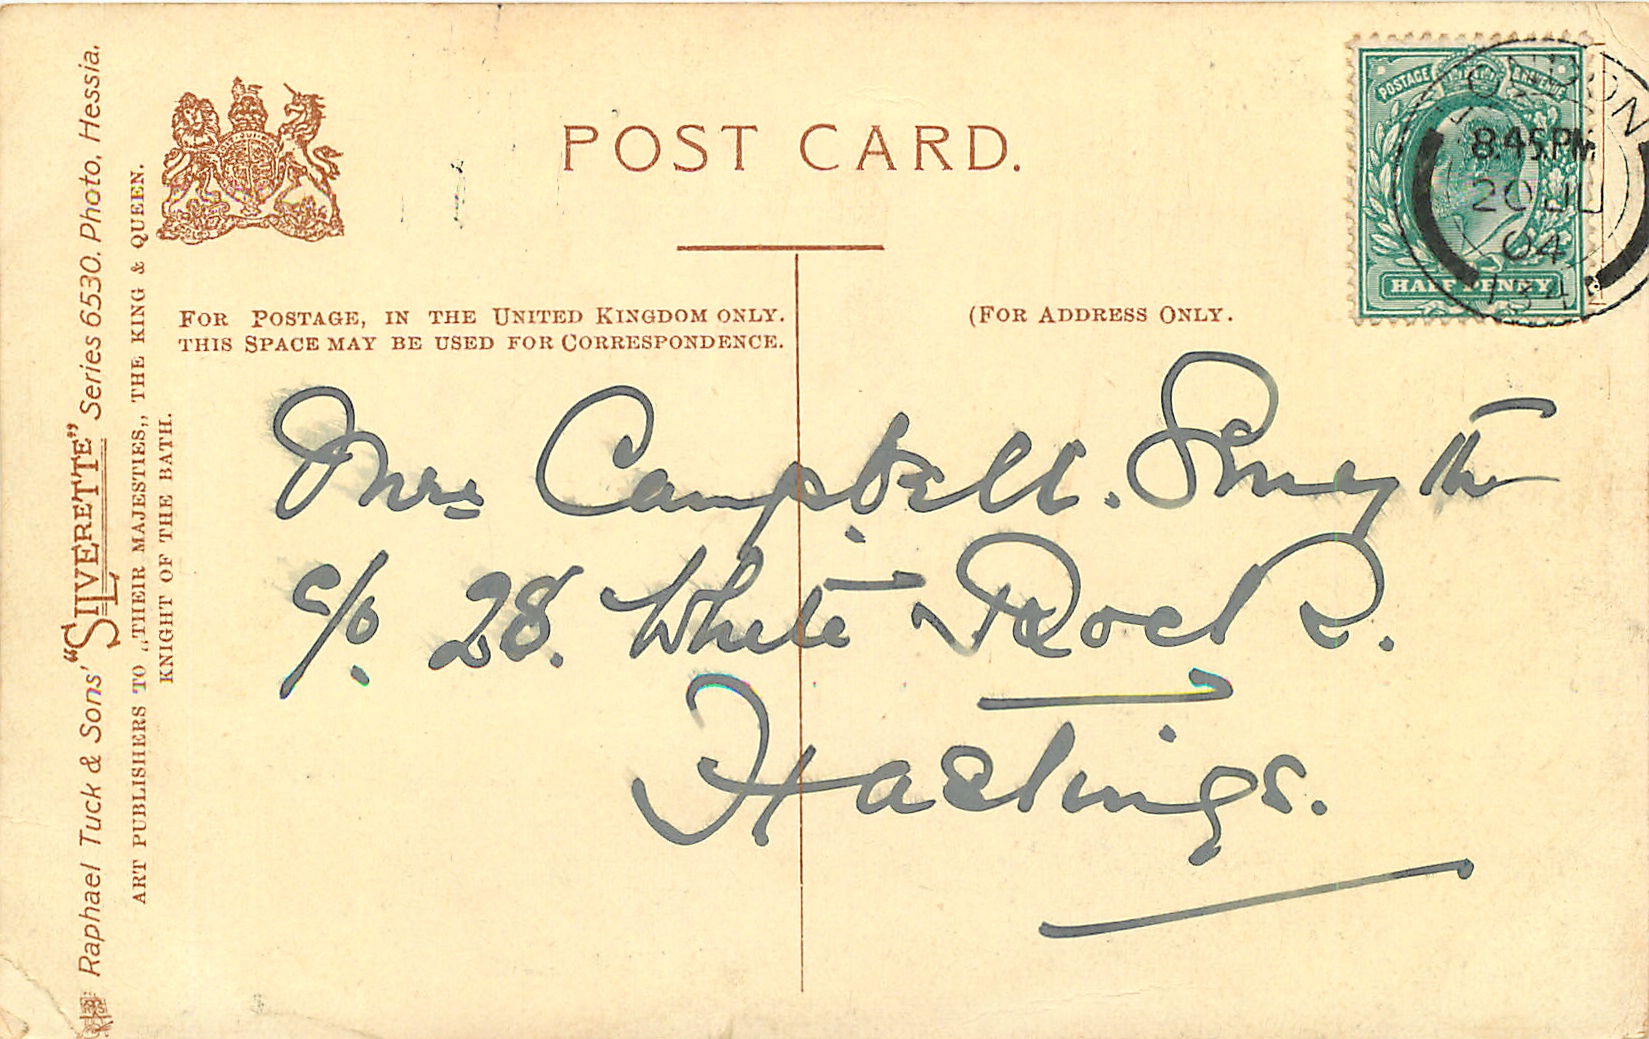 POST CARD.
FOR POSTAGE, IN THE UNITED KINGDOM ONLY.
THIS SPACE MAY BE USED FOR CORRESPONDENCE.
(FOR ADDRESS ONLY.
POSTAGE REVENUE
HALF PENNY
LONDON
8.45 PM
20 JU
04
134
Mrs Campbell. Smyth
c/o. 28. White Rock.
Hastings.
Raphael Tuck & Sons' "SILVERETTE" Series 6530. Photo, Hessia.
ART PUBLISHERS TO „THEIR MAJESTIES,, THE KING & QUEEN.
KNIGHT OF THE BATH.